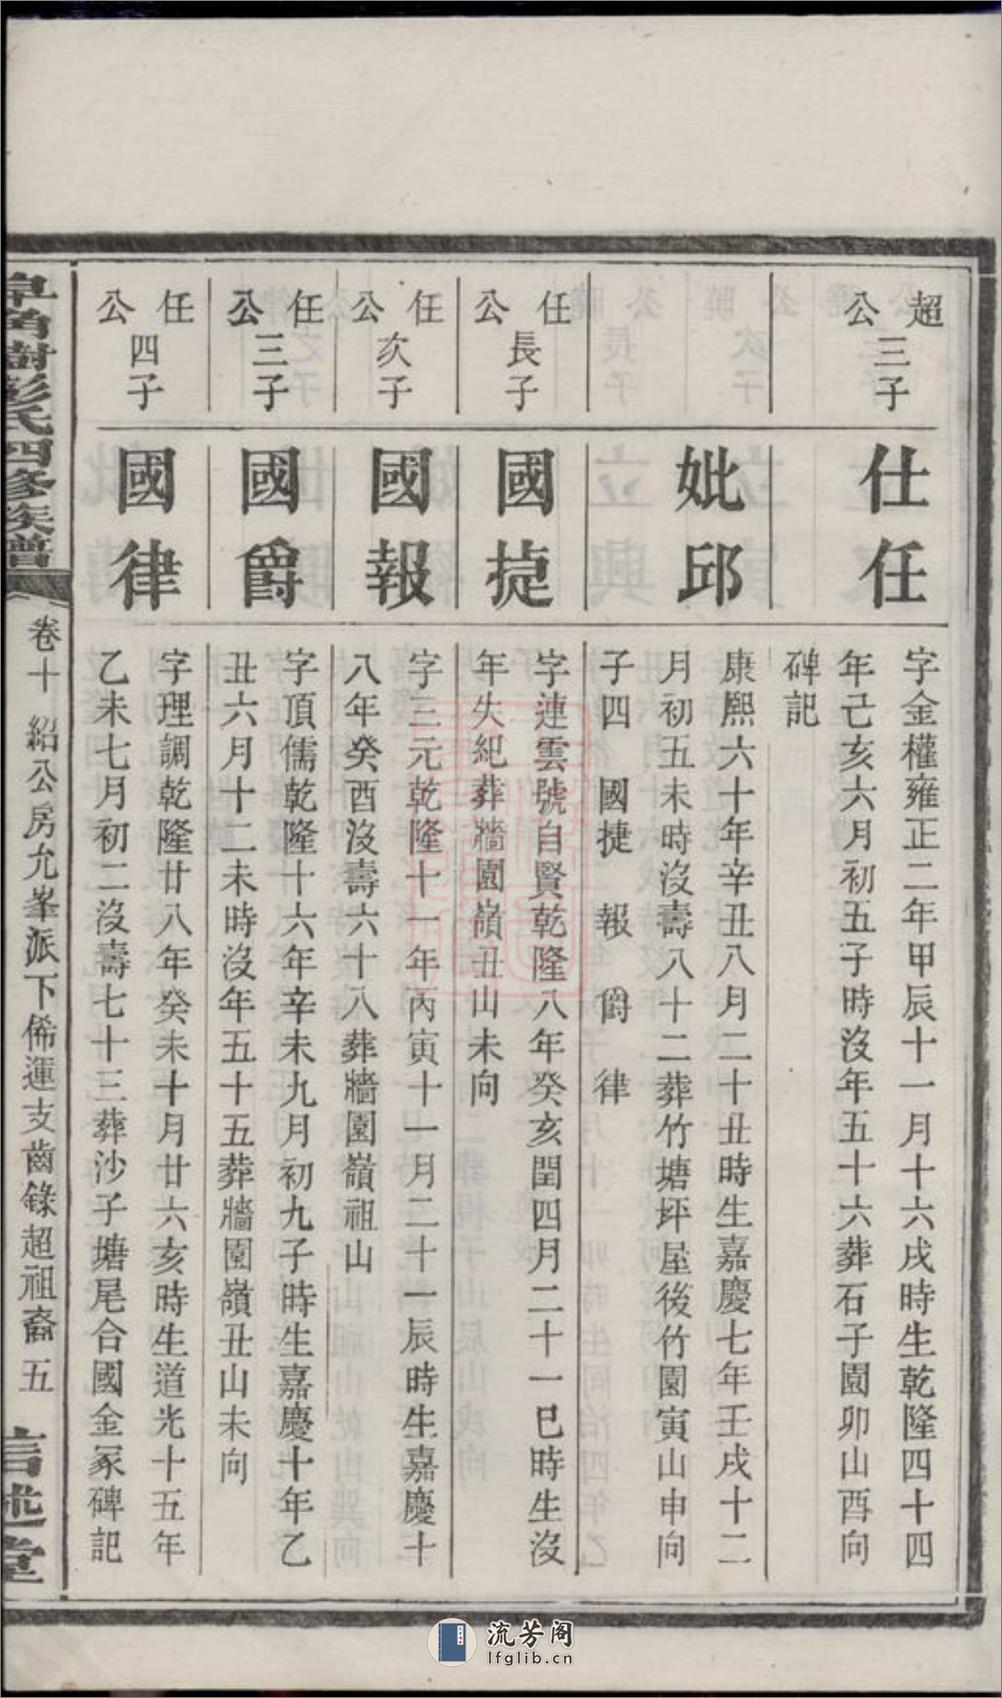 超公三子
仕任
字金權雍正二年甲辰十一月十六戌時生乾隆四十四
年己亥六月初五子時沒年五十六葬石子園卯山酉向
碑記
妣邱
康熙六十年辛丑八月二十丑時生嘉慶七年壬戌十二
月初五未時沒壽八十二葬竹塘坪屋後竹園寅山申向
子四 國捷 報 爵 律
任公長子
國捷
字連雲號自賢乾隆八年癸亥閏四月二十一巳時生沒
年失紀葬牆園嶺丑山未向
任公次子
國報
字三元乾隆十一年丙寅十一月二十一辰時生嘉慶十
八年癸酉沒壽六十八葬牆園嶺祖山
任公三子
國爵
字頂儒乾隆十六年辛未九月初九子時生嘉慶十年乙
丑六月十二未時沒年五十五葬牆園嶺丑山未向
任公四子
國律
字理調乾隆廿八年癸未十月廿六亥時生道光十五年
乙未七月初二沒壽七十三葬沙子塘尾合國金冢碑記
皁角樹彭氏四修族譜
卷十 紹公房允峯派下俙運支齒錄超祖裔 五
信述堂
流芳阁
lfglib.cn